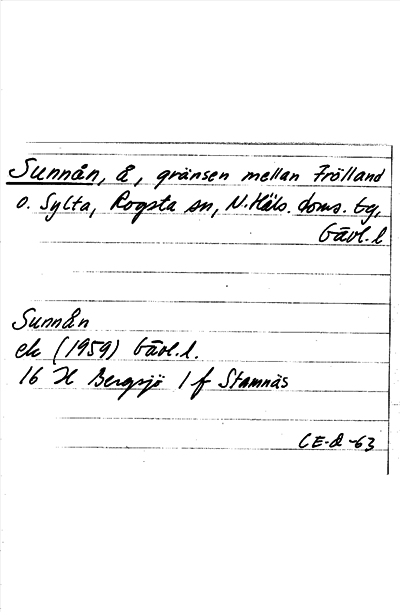 Sunnån, å, gränsen mellan Frölland
o. Sylta, Rogsta sn, N. Häls. doms. tg,
Gävl. l
Sunnån
ek (1959) Gävl. l.
16 H Bergsjö 1 f Stamnäs
CE-d -63